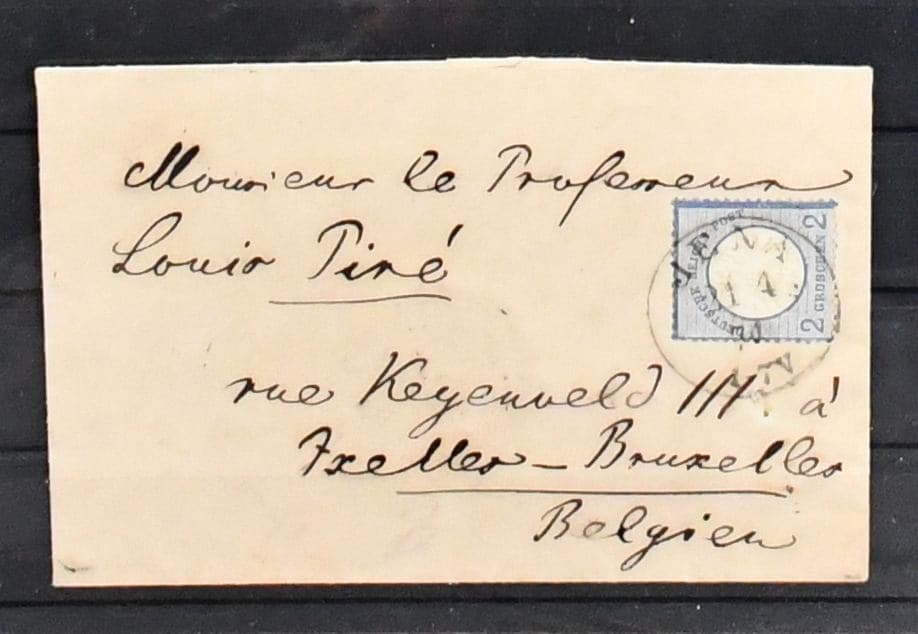 Monsieur le Professeur
Louis Piré
rue Keyenveld 111. à
Ixelles - Bruxelles
Belgien
DEUTSCHE REICHS POST
2 GROSCHEN 2
JENA
21 4